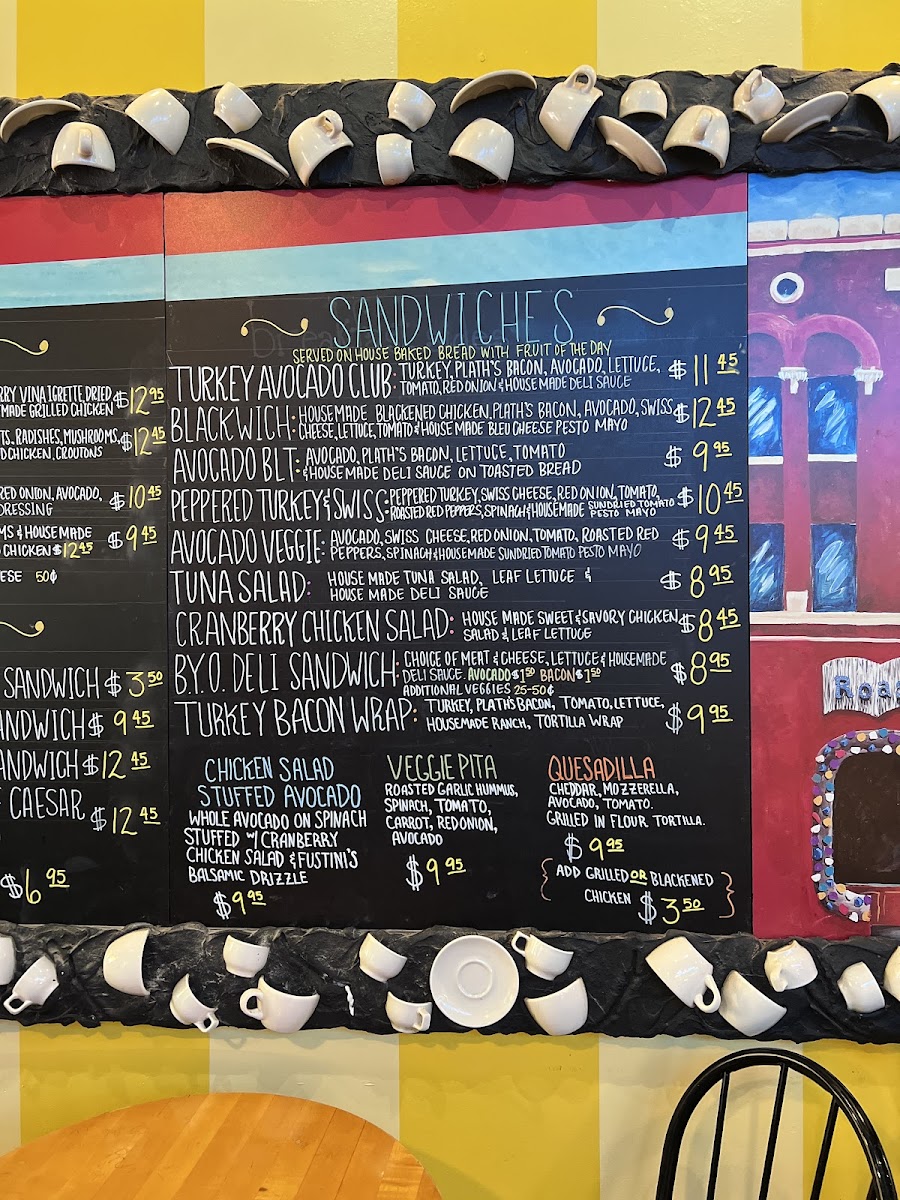 RRY VINAIGRETTE, DRIED
MADE GRILLED CHICKEN $12.95
TS, RADISHES, MUSHROOMS,
D CHICKEN, CROUTONS $12.45
RED ONION, AVOCADO,
DRESSING $10.45
MS & HOUSEMADE
CHICKEN $12.45 $9.45
ESE 50¢
SANDWICH $3.50
ANDWICH $9.45
ANDWICH $12.45
CAESAR $12.45
$6.95
SANDWICHES
SERVED ON HOUSE BAKED BREAD WITH FRUIT OF THE DAY
TURKEY AVOCADO CLUB: TURKEY, PLATH'S BACON, AVOCADO, LETTUCE,
TOMATO, RED ONION & HOUSE MADE DELI SAUCE $11.45
BLACKWICH: HOUSEMADE BLACKENED CHICKEN, PLATH'S BACON, AVOCADO, SWISS
CHEESE, LETTUCE, TOMATO & HOUSE MADE BLEU CHEESE PESTO MAYO $12.45
AVOCADO BLT: AVOCADO, PLATH'S BACON, LETTUCE, TOMATO
& HOUSE MADE DELI SAUCE ON TOASTED BREAD $9.95
PEPPERED TURKEY & SWISS: PEPPERED TURKEY, SWISS CHEESE, RED ONION, TOMATO,
ROASTED RED PEPPERS, SPINACH & HOUSEMADE SUNDRIED TOMATO
PESTO MAYO $10.45
AVOCADO VEGGIE: AVOCADO, SWISS CHEESE, RED ONION, TOMATO, ROASTED RED
PEPPERS, SPINACH & HOUSEMADE SUNDRIED TOMATO PESTO MAYO $9.45
TUNA SALAD: HOUSE MADE TUNA SALAD, LEAF LETTUCE &
HOUSE MADE DELI SAUCE $8.95
CRANBERRY CHICKEN SALAD: HOUSE MADE SWEET & SAVORY CHICKEN
SALAD & LEAF LETTUCE $8.45
B.Y.O. DELI SANDWICH: CHOICE OF MEAT & CHEESE, LETTUCE & HOUSEMADE
DELI SAUCE. AVOCADO $1.50 BACON $1.50
ADDITIONAL VEGGIES 25-50¢ $8.95
TURKEY BACON WRAP: TURKEY, PLATH'S BACON, TOMATO, LETTUCE,
HOUSEMADE RANCH, TORTILLA WRAP $9.95
CHICKEN SALAD
STUFFED AVOCADO
WHOLE AVOCADO ON SPINACH
STUFFED W/ CRANBERRY
CHICKEN SALAD & FUSTINI'S
BALSAMIC DRIZZLE
$9.95
VEGGIE PITA
ROASTED GARLIC HUMMUS,
SPINACH, TOMATO,
CARROT, RED ONION,
AVOCADO
$9.95
QUESADILLA
CHEDDAR, MOZZERELLA,
AVOCADO, TOMATO.
GRILLED IN FLOUR TORTILLA.
$9.95
ADD GRILLED OR BLACKENED
CHICKEN $3.50
Roa